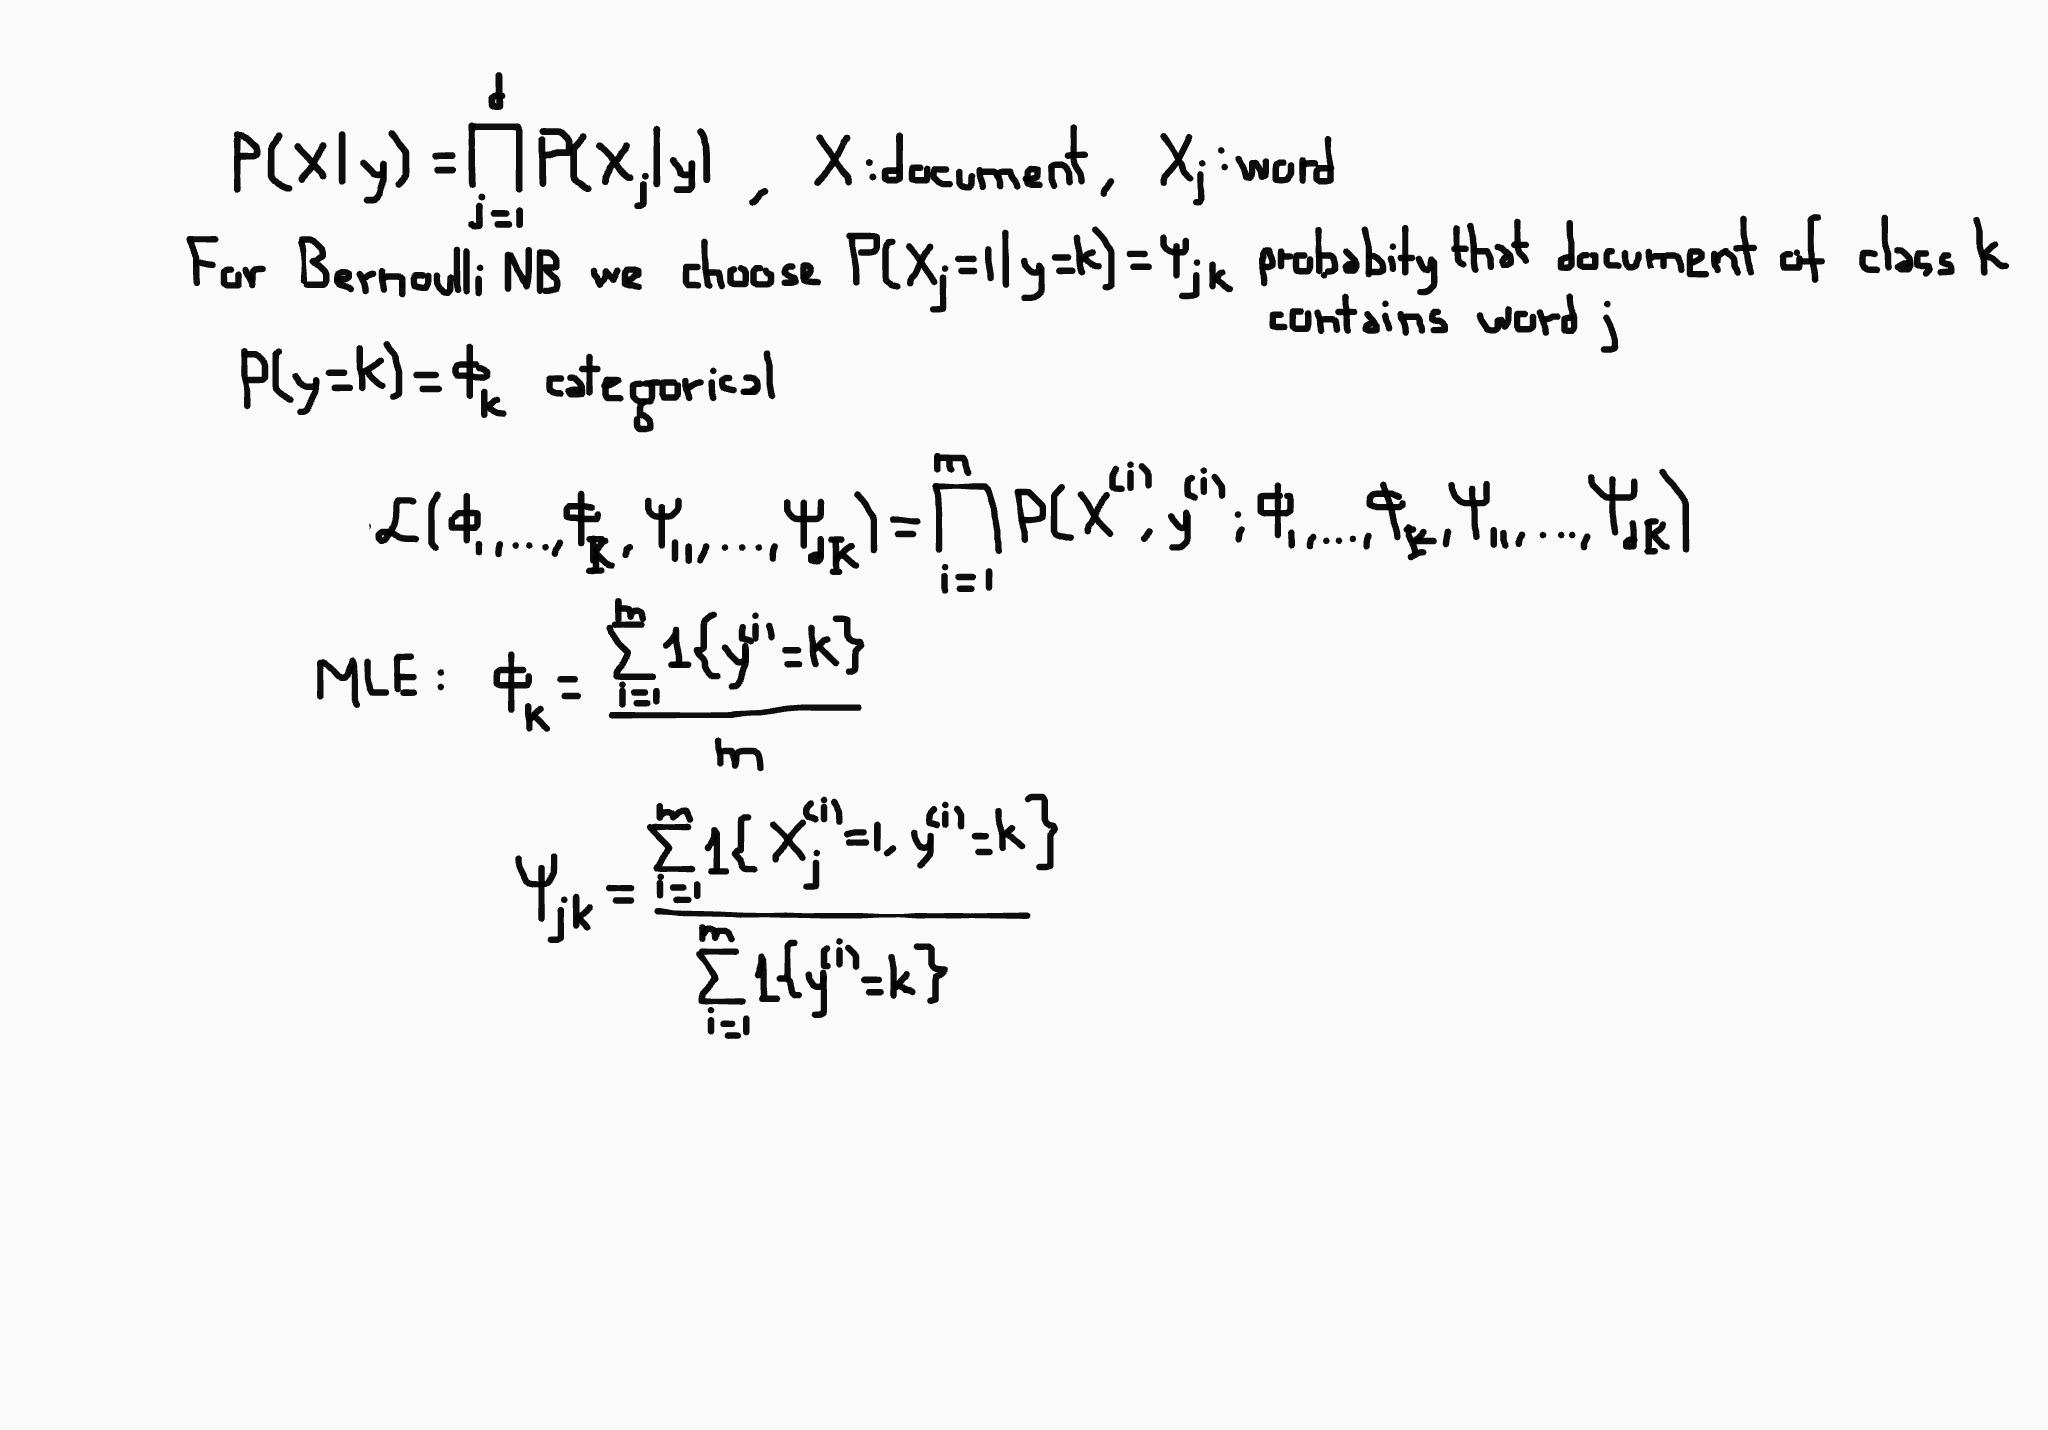 P(X|y) = ∏_{j=1}^{d} P(X_j|y) , X:document, X_j:word
For Bernoulli NB we choose P(X_j=1|y=k)=Ψ_{jk} probabity that document of class k
contains word j
P(y=k)=ϕ_k categorical
ℒ(ϕ_1,...,ϕ_K, Ψ_{11},...,Ψ_{dK}) = ∏_{i=1}^{m} P(X^{(i)}, y^{(i)}; ϕ_1,...,ϕ_K, Ψ_{11},...,Ψ_{dK})
MLE: ϕ_k = \frac{∑_{i=1}^{m} 1{y^{(i)}=k}}{m}
Ψ_{jk} = \frac{∑_{i=1}^{m} 1{X_j^{(i)}=1, y^{(i)}=k}}{∑_{i=1}^{m} 1{y^{(i)}=k}}